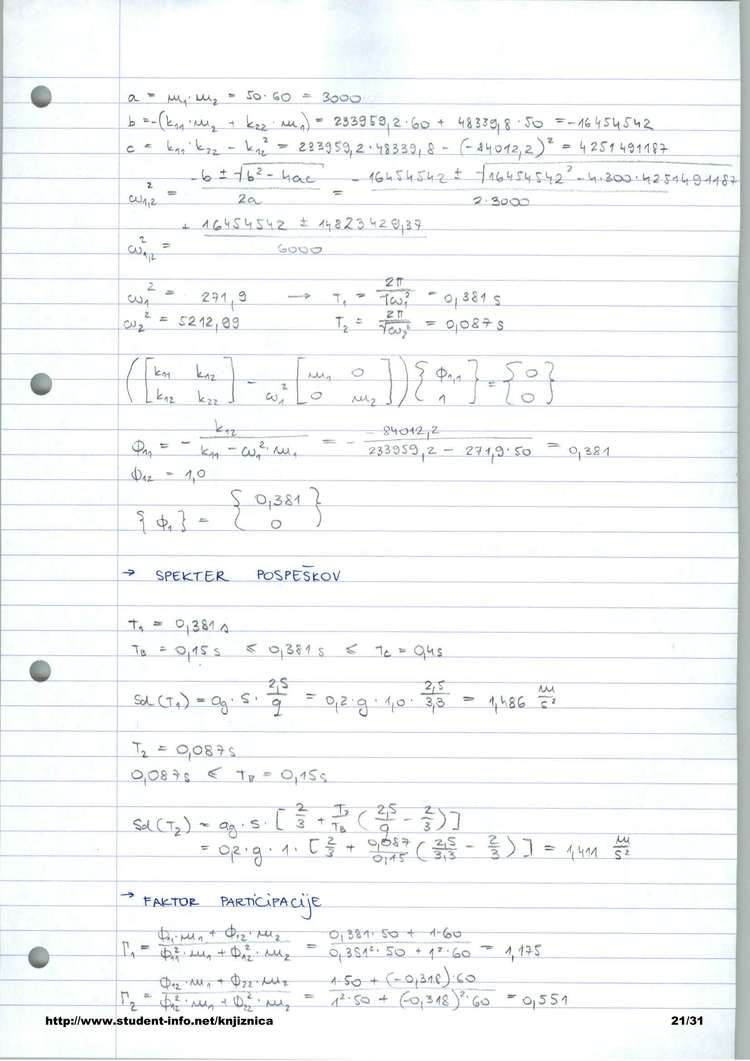 a = m₁·m₂ = 50·60 = 3000
b = -(k₁₁·m₂ + k₂₂·m₁) = 233959,2·60 + 48339,8·50 = -16454542
c = k₁₁·k₂₂ - k₁₂² = 233959,2·48339,8 - (-84012,2)² = 4251491187
ω₁,₂² = (-b ± √(b² - 4ac)) / 2a = (-16454542 ± √(16454542² - 4·300·4251491187)) / 2·3000
ω₁,₂² = (+16454542 ± 14823429,37) / 6000
ω₁² = 271,9 → T₁ = 2π/√ω₁² = 0,381 s
ω₂² = 5212,99 T₂ = 2π/√ω₂² = 0,087 s
([k₁₁ k₁₂; k₁₂ k₂₂] - ω₁² [m₁ 0; 0 m₂]) {Φ₁,₁; 1} = {0; 0}
Φ₁₁ = - k₁₂ / (k₁₁ - ω₁²·m₁) = - -84012,2 / (233959,2 - 271,9·50) = 0,381
Φ₁₂ = 1,0
{Φ₁} = {0,381; 0}
→ SPEKTER POSPEŠKOV
T₁ = 0,381 s
T_B = 0,15 s ≤ 0,381 s ≤ T_C = 0,4 s
Sd(T₁) = ag·S·2,5/q = 0,2·g·1,0·2,5/3,3 = 1,486 m/s²
T₂ = 0,087 s
0,087 s ≤ T_B = 0,15 s
Sd(T₂) = ag·S·[2/3 + T₂/T_B (2,5/q - 2/3)]
= 0,2·g·1·[2/3 + 0,087/0,15 (2,5/3,3 - 2/3)] = 1,411 m/s²
→ FAKTOR PARTICIPACIJE
Γ₁ = (Φ₁·m₁ + Φ₁₂·m₂) / (Φ₁₁²·m₁ + Φ₁₂²·m₂) = (0,381·50 + 1·60) / (0,381²·50 + 1²·60) = 1,175
Γ₂ = (Φ₁₂·m₁ + Φ₂₂·m₂) / (Φ₁₂²·m₁ + Φ₂₂²·m₂) = (1·50 + (-0,318)·60) / (1²·50 + (-0,318)²·60) = 0,551
http://www.student-info.net/knjiznica 21/31